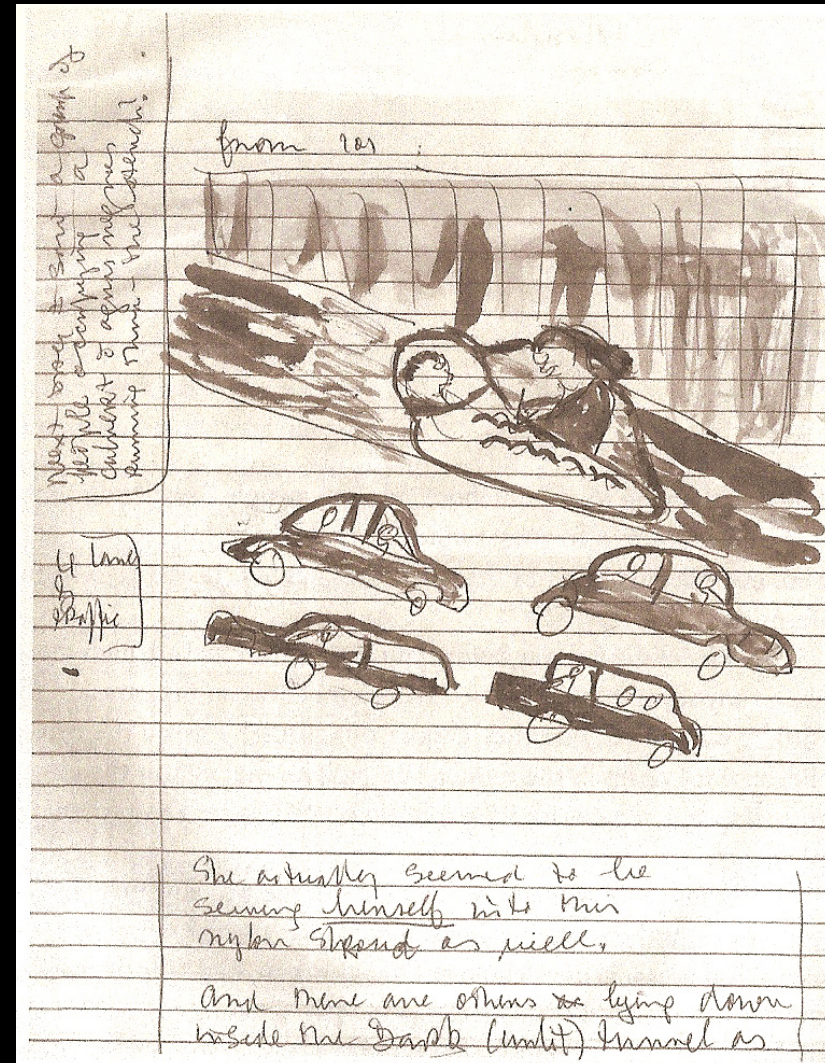 from
Next I saw a group of
people occupying a
culvert of aguas negras
running thru - the stench!
4 lanes
of
traffic
She actually seemed to be
sewing herself into this
nylon shroud as well.
And there are others lying down
inside the Dark (unlit) tunnel as